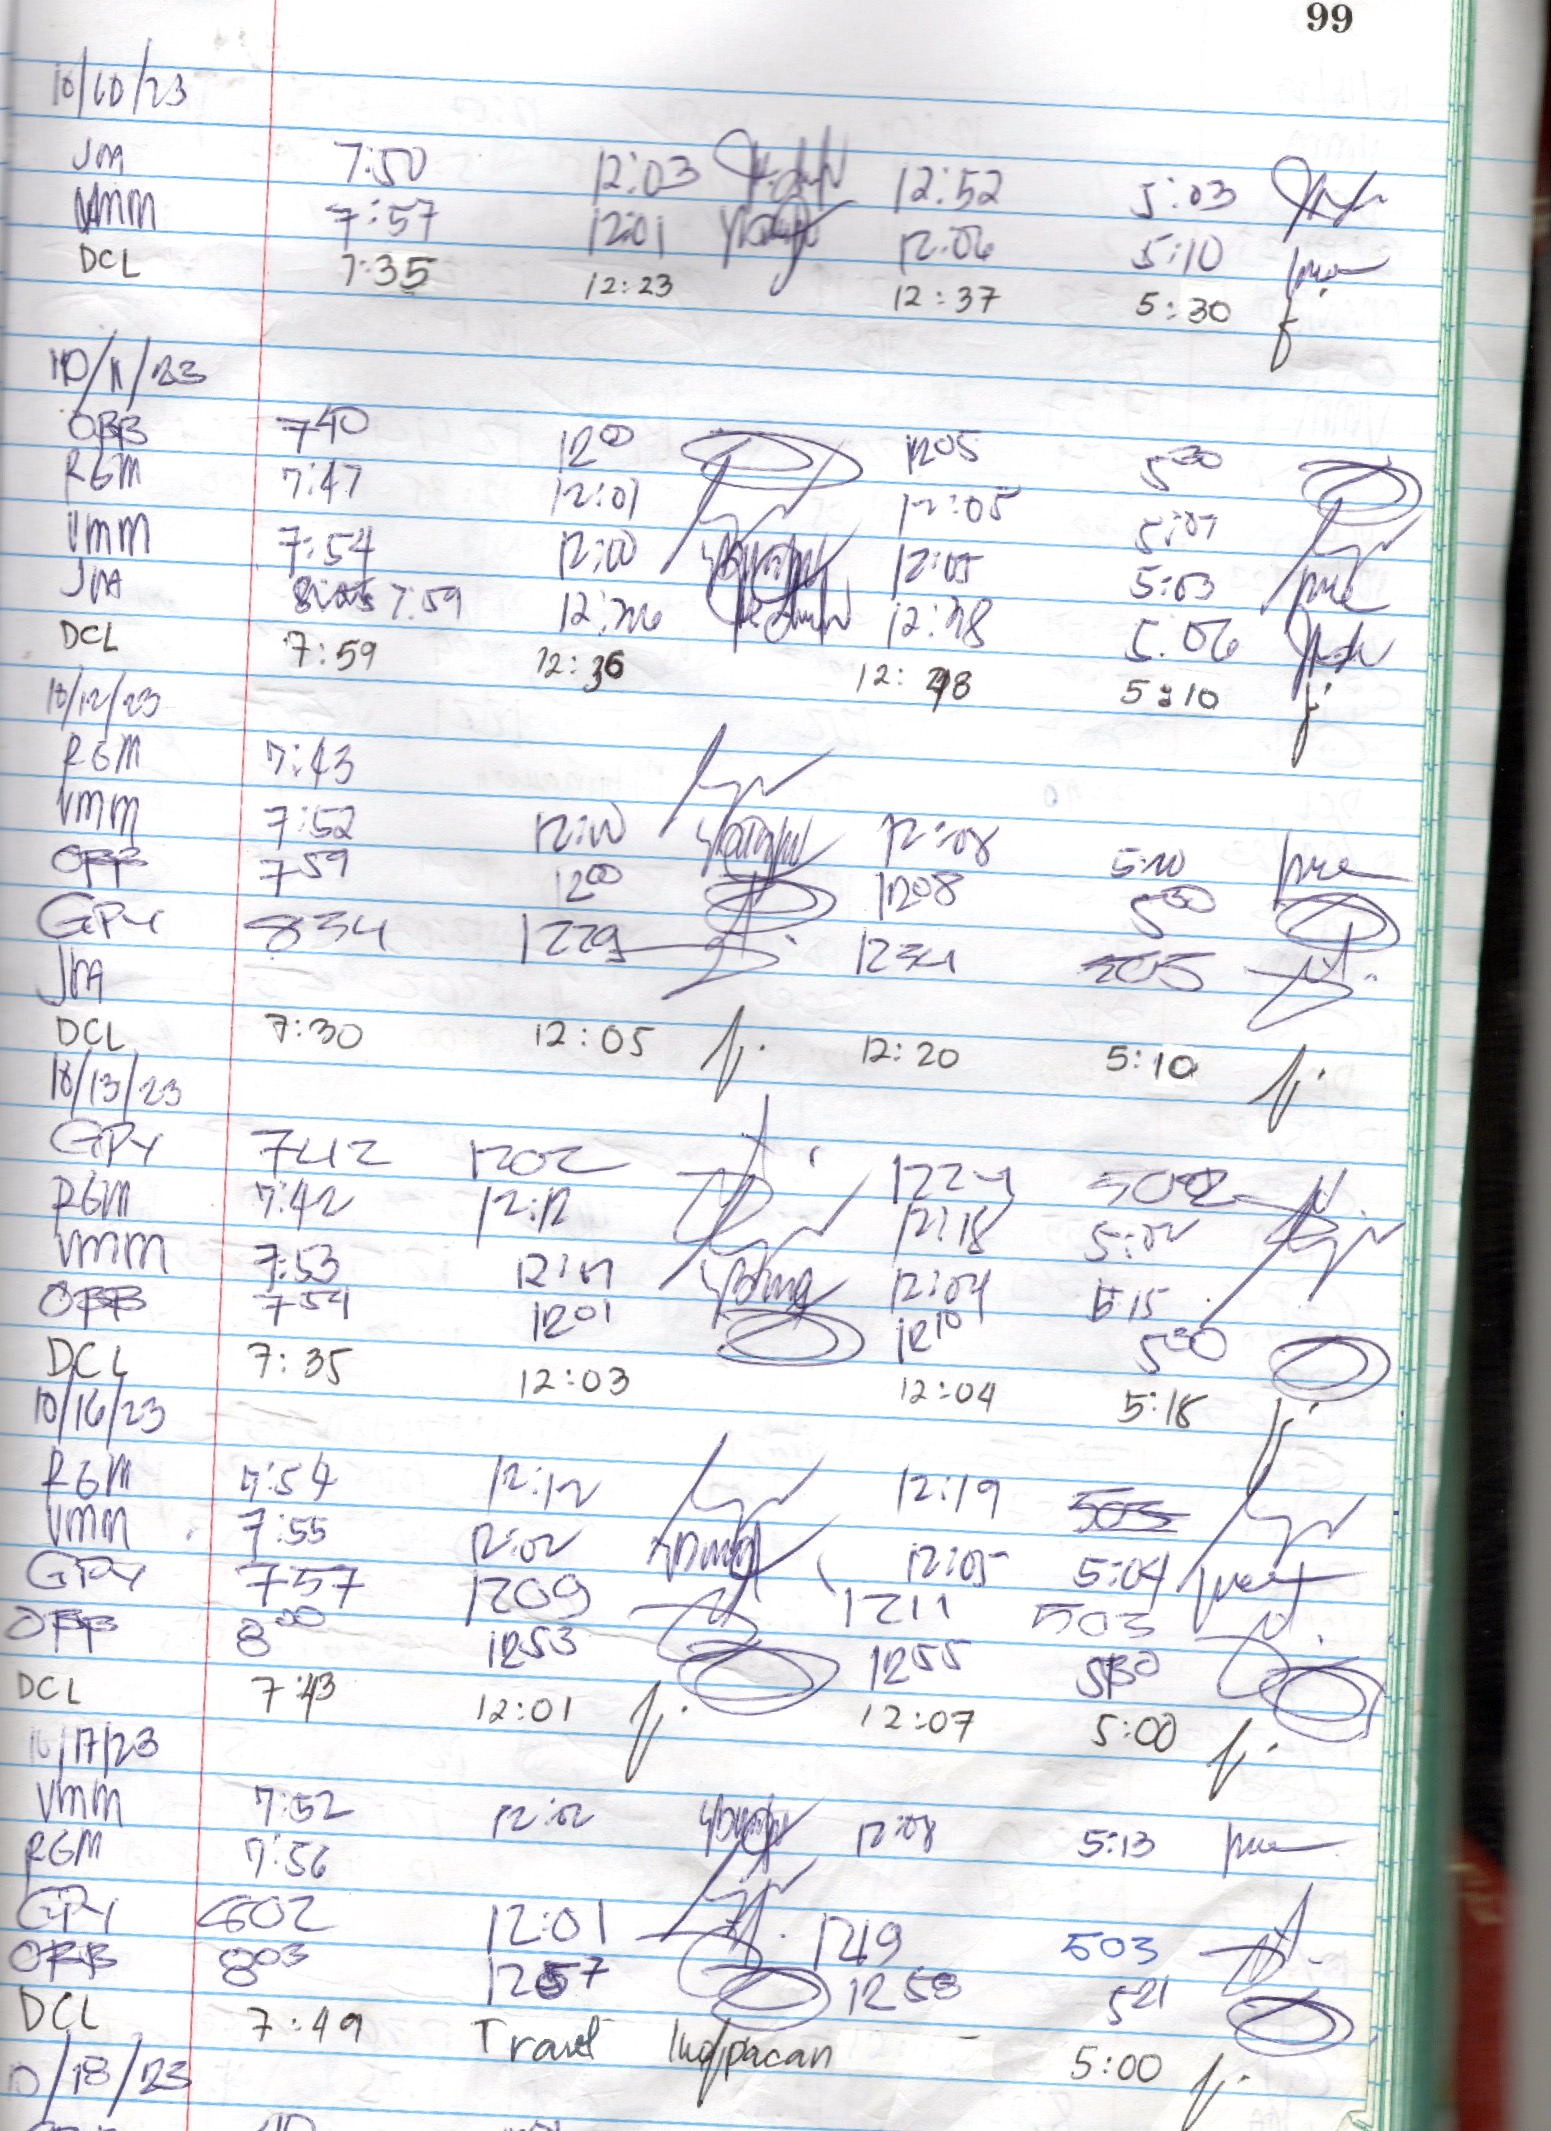 99
10/10/23
JMA 7:50 12:03 12:52 5:03
VMM 7:57 12:01 12:06 5:10
DCL 7:35 12:23 12:37 5:30
10/11/23
OBB 7 40 12 00 12 05 5 30
RGM 7:47 12:01 12:05 5:07
VMM 7:54 12:00 12:05 5:03
JMA 7:59 5:06
DCL 7:59 12:36 5:10
10/12/23
RGM 7:43
VMM 7:52 12:00 12:08 5:20
OBB 7 59 12 00 1208 5 30
GPY 834 1229 1234 505
JMA
DCL 7:30 12:05 12:20 5:10
10/13/23
GPY 742 1202 1224 502
RGM 7:42 12:12 12:18 5:02
VMM 7:53 12:04 5:15
OBB 754 1201 12 10 5 30
DCL 7:35 12:03 12:04 5:18
10/16/23
RGM 7:54 12:12 12:19 503
VMM 7:55 12:02 12:05 5:04
GPY 757 1209 1211 503
OBB 8 00 1253 1255 530
DCL 7:43 12:01 12:07 5:00
10/17/23
VMM 7:52 12:02 12:08 5:13
RGM 7:56
GPY 802 12:01 1249 503
OBB 8 03 1257 1258 5 21
DCL 7:49 Travel 5:00
10/18/23